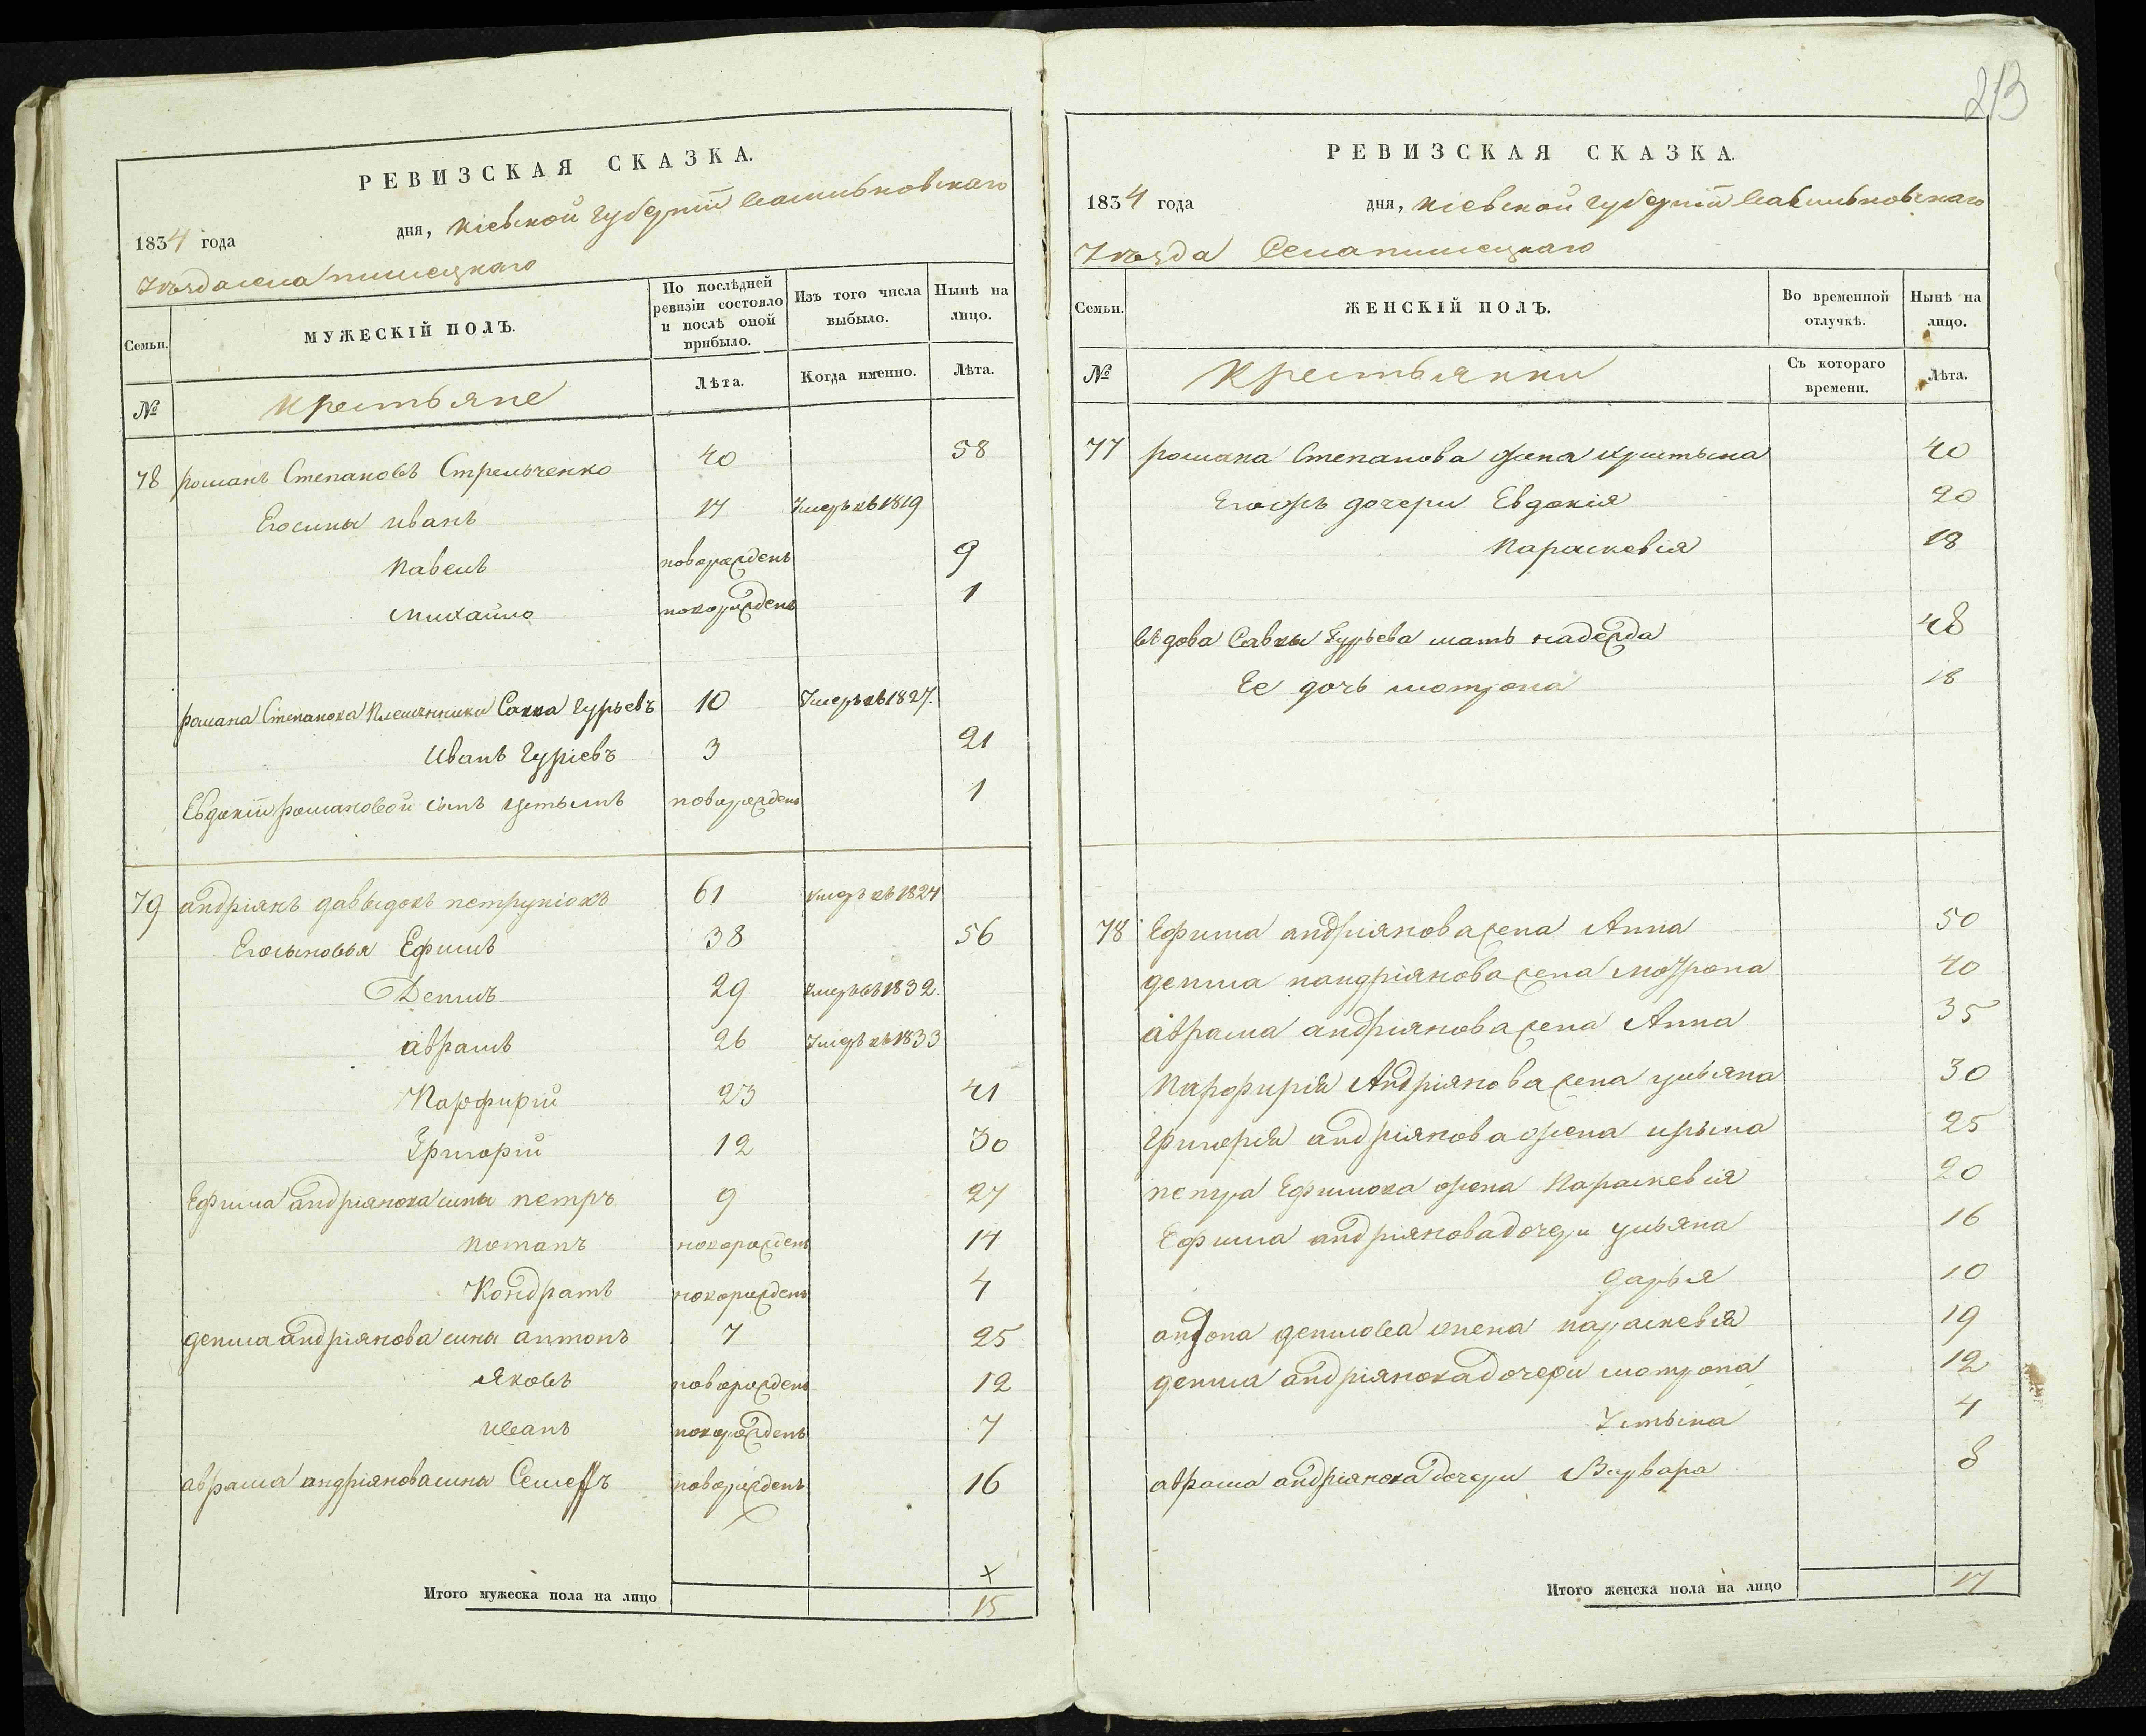 213
РЕВИЗСКАЯ СКАЗКА.
1834 года дня, Кіевской губерніи Васильковскаго
Уѣзда села
Семьи. МУЖЕСКІЙ ПОЛЪ. По послѣдней ревизіи состояло и послѣ оной прибыло. Изъ того числа выбыло. Нынѣ на лицо.
№ Крестьяне Лѣта. Когда именно. Лѣта.
78 романъ Степановъ Стрельченко 40 58
Его сины иванъ 14 Умеръ въ 1819
Павелъ новорожденъ 9
Михайло новорожденъ 1
романа Степанова Племянники Савка гурьевъ 10 Умеръ въ 1827.
Иванъ гуріевъ 3 21
Евдокіи романовой сынъ новорожденъ 1
79 андріянъ давыдовъ петруніокъ 61 Умеръ въ 1824
Его сыновья Ефимъ 38 56
Денисъ 29 Умеръ въ 1832.
аврамъ 26 Умеръ въ 1833
Парфирій 23 41
Григорій 12 30
Ефима андріянова сины петръ 9 27
потапъ новорожденъ 14
Кондратъ новорожденъ 4
андріянова сины антонъ 7 25
Яковъ новорожденъ 12
иванъ новорожденъ 7
аврама андріянова сины новорожденъ 16
Итого мужеска пола на лицо 15
РЕВИЗСКАЯ СКАЗКА.
1834 года дня, Кіевской губерніи Васильковскаго
Уѣзда Села
Семьи. ЖЕНСКІЙ ПОЛЪ. Во временной отлучкѣ. Нынѣ на лицо.
№ Крестьянки Съ котораго времени. Лѣта.
77 романа Степанова жена христына 40
дочери Евдокія 20
Параскевія 18
въдова Савки Гурьева мать надежда 48
Ее дочь мотрона 18
78 Ефима андріянова жена Анна 50
жена мотрона 40
аврама андріянова жена Анна 35
Парфирія Андріянова жена ульяна 30
григорія андріянова жена ирына 25
петра Ефимова жена Параскевія 20
Ефима андріянова дочери ульяна 16
дарья 10
антона жена параскевія 19
андріянова дочери мотрона 12
Устына 4
аврама андріянова дочери Варвара 8
Итого женска пола на лицо 17